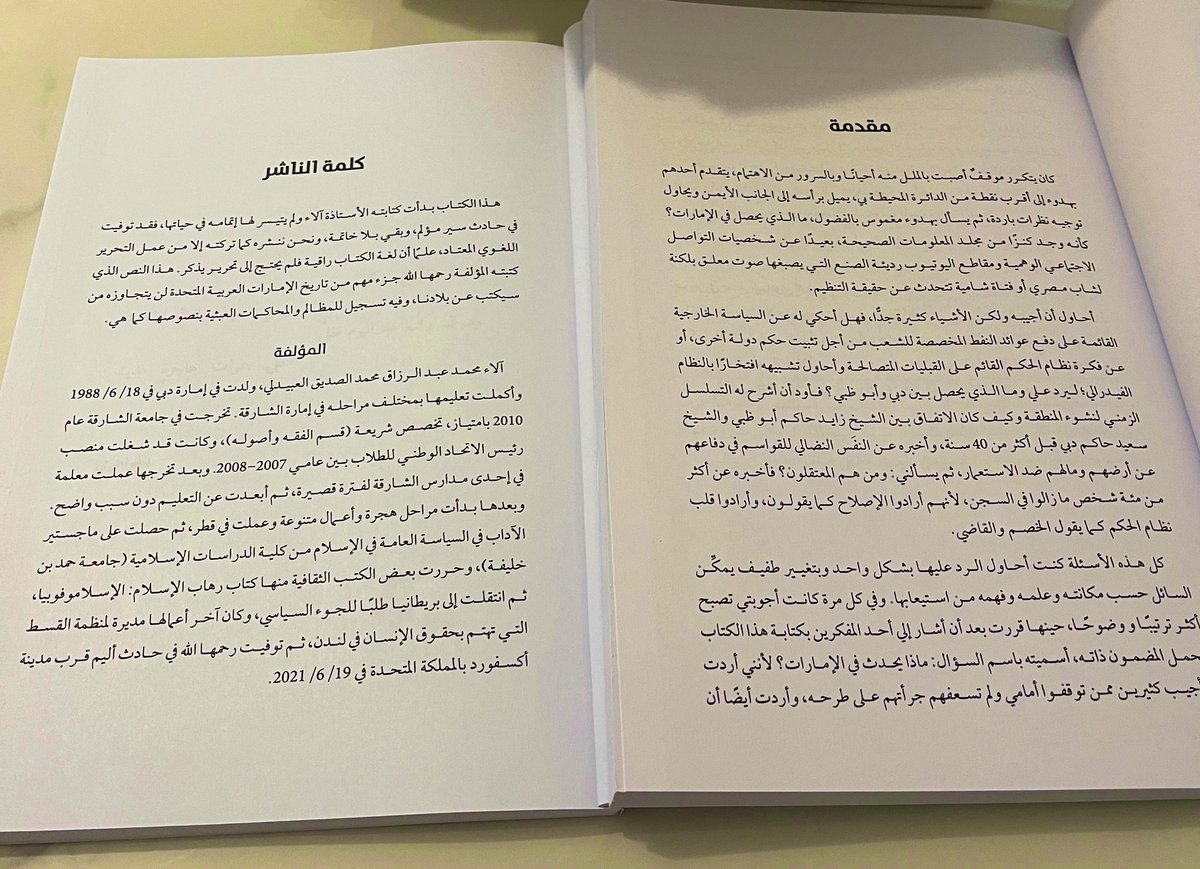 مقدمة
كان يتكرر موقفٌ أصبت بالملل منه أحيانًا وبالسرور من الاهتمام، يتقدم أحدهم
بهدوء إلى أقرب نقطة من الدائرة المحيطة بي، يميل برأسه إلى الجانب الأيمن ويحاول
توجيه نظرات باردة، ثم يسأل بهدوء مغموس بالفضول، ما الذي يحصل في الإمارات؟
كأنه وجد كنزًا من مجلد المعلومات الصحيحة، بعيدًا عن شخصيات التواصل
الاجتماعي الوهمية ومقاطع اليوتيوب رديئة الصنع التي يصبغها صوت معلق بلكنة
لشاب مصري أو فتاة شامية تتحدث عن حقيقة التنظيم.
أحاول أن أجيبه ولكن الأشياء كثيرة جدًّا، فهل أحكي له عن السياسة الخارجية
القائمة على دفع عوائد النفط المخصصة للشعب من أجل تثبيت حكم دولة أخرى، أو
عن فكرة نظام الحكم القائم على القبليات المتصالحة وأحاول تشبيهه افتخارًا بالنظام
الفيدرالي؛ ليرد علي وما الذي يحصل بين دبي وأبو ظبي؟ فأود أن أشرح له التسلسل
الزمني لنشوء المنطقة وكيف كان الاتفاق بين الشيخ زايد حاكم أبو ظبي والشيخ
سعيد حاكم دبي قبل أكثر من 40 سنة، وأخبره عن النفَس النضالي للقواسم في دفاعهم
عن أرضهم ومالهم ضد الاستعمار، ثم يسألني: ومن هم المعتقلون؟ فأخبره عن أكثر
من مئة شخص ما زالوا في السجن، لأنهم أرادوا الإصلاح كما يقولون، وأرادوا قلب
نظام الحكم كما يقول الخصم والقاضي.
كل هذه الأسئلة كنت أحاول الرد عليها بشكل واحد وبتغيير طفيف يمكِّن
السائل حسب مكانته وعلمه وفهمه من استيعابها. وفي كل مرة كانت أجوبتي تصبح
أكثر ترتيبًا ووضوحًا، حينها قررت بعد أن أشار إلي أحد المفكرين بكتابة هذا الكتاب
حمل المضمون ذاته، أسميته باسم السؤال: ماذا يحدث في الإمارات؟ لأنني أردت
أجيب كثيرين ممن توقفوا أمامي ولم تسعفهم جرأتهم على طرحه، وأردت أيضًا أن
كلمة الناشر
هذا الكتاب بدأت كتابته الأستاذة آلاء ولم يتيسر لها إتمامه في حياتها، فقد توفيت
في حادث سير مؤلم، وبقي بلا خاتمة، ونحن ننشره كما تركته إلا من عمل التحرير
اللغوي المعتاد، علمًا أن لغة الكتاب راقية فلم يحتج إلى تحرير يذكر. هذا النص الذي
كتبته المؤلفة رحمها الله جزء مهم من تاريخ الإمارات العربية المتحدة لن يتجاوزه من
سيكتب عن بلادنا، وفيه تسجيل للمظالم والمحاكمات العبثية بنصوصها كما هي.
المؤلفة
آلاء محمد عبد الرزاق محمد الصديق العبيدلي، ولدت في إمارة دبي في 18/ 6/ 1988
وأكملت تعليمها بمختلف مراحله في إمارة الشارقة. تخرجت في جامعة الشارقة عام
2010 بامتياز، تخصص شريعة (قسم الفقه وأصوله)، وكانت قد شغلت منصب
رئيس الاتحاد الوطني للطلاب بين عامي 2007–2008. وبعد تخرجها عملت معلمة
في إحدى مدارس الشارقة لفترة قصيرة، ثم أبعدت عن التعليم دون سبب واضح.
وبعدها بدأت مراحل هجرة وأعمال متنوعة وعملت في قطر، ثم حصلت على ماجستير
الآداب في السياسة العامة في الإسلام من كلية الدراسات الإسلامية (جامعة حمد بن
خليفة)، وحررت بعض الكتب الثقافية منها كتاب رهاب الإسلام: الإسلاموفوبيا،
ثم انتقلت إلى بريطانيا طلبًا للجوء السياسي، وكان آخر أعمالها مديرة لمنظمة القسط
التي تهتم بحقوق الإنسان في لندن، ثم توفيت رحمها الله في حادث أليم قرب مدينة
أكسفورد بالمملكة المتحدة في 19/ 6/ 2021.